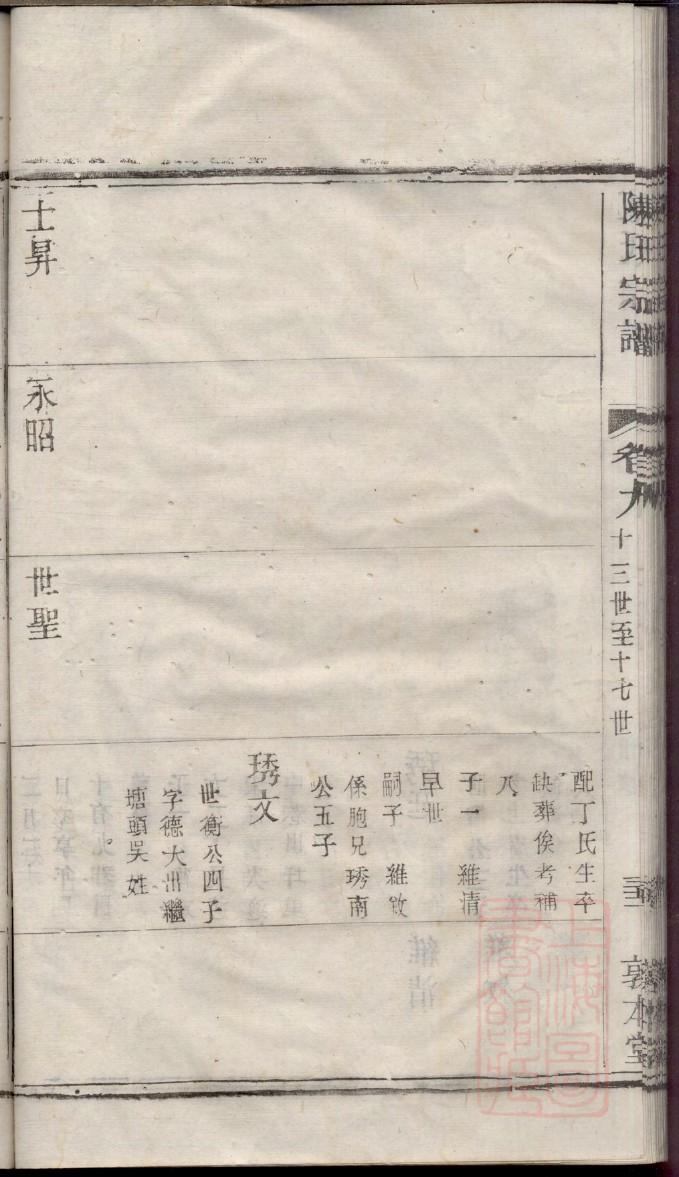 陳氏宗譜
卷九
十三世至十七世
敦本堂
配丁氏生卒
缺葬俟考補
入
子一 維清
早世
嗣子 維敬
係胞兄琇南
公五子
琇文
世衡公四子
字德大出繼
塘頭吳姓
士昇
永昭
世聖